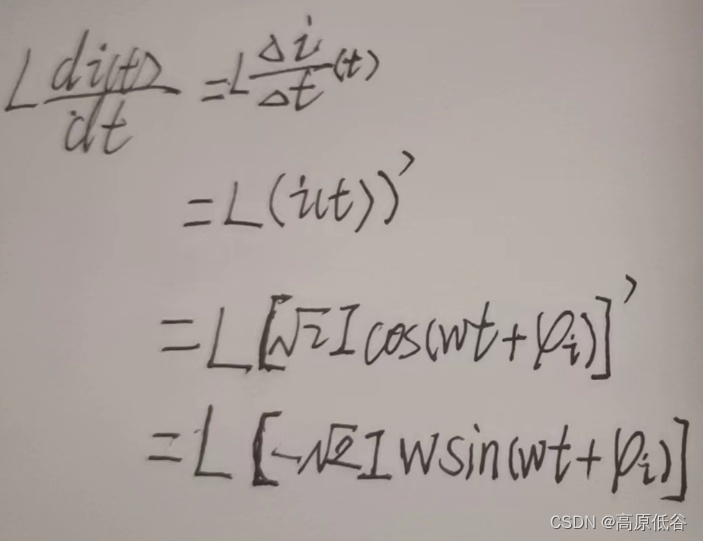 L di(t)/dt = L Δi/Δt (t)
= L(i(t))'
= L[√2 I cos(wt+φi)]'
= L[-√2 I w sin(wt+φi)]
CSDN @高原低谷